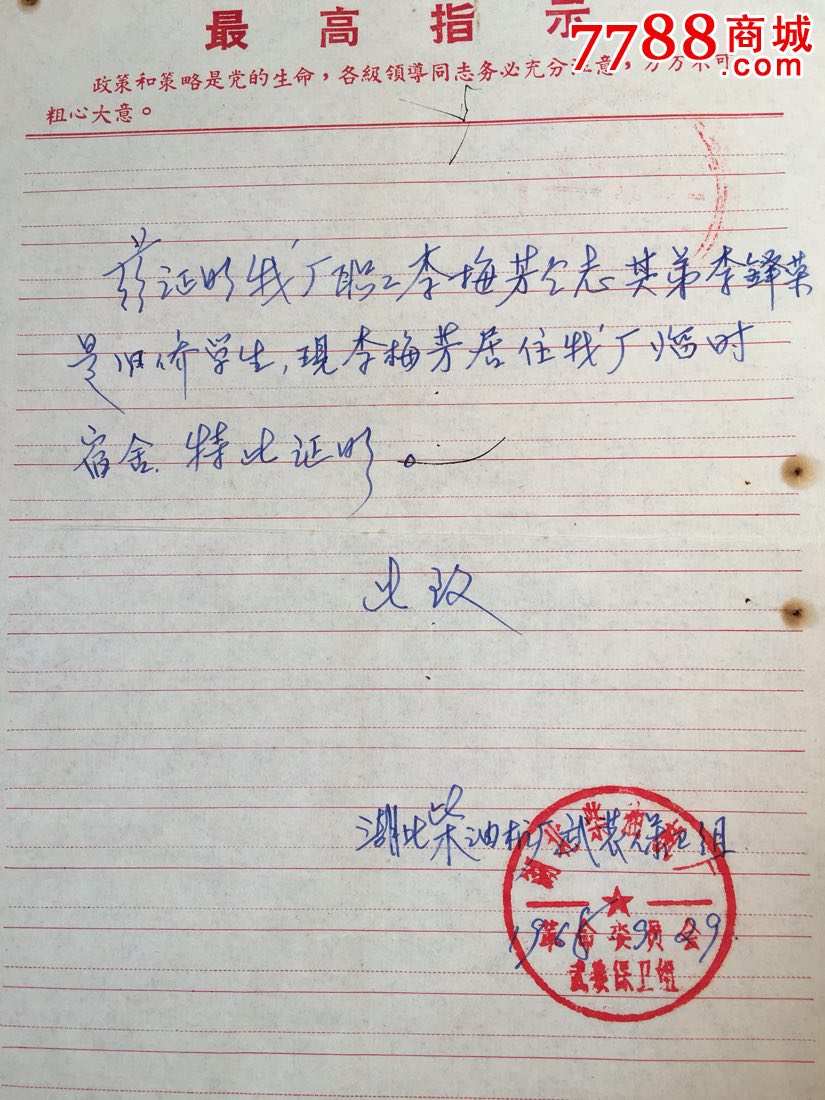 最高指示
7788商城
政策和策略是党的生命，各級領導同志务必充分注意，万万不可
粗心大意。
兹证明我厂职工李梅芳仝志其弟李鋒英
是归侨学生，现李梅芳居住我厂临时
宿舍.特此证明。
此致
湖北柴油机厂武装保卫组
1968.9.29.
湖北柴油机厂
革命委员会
武装保卫组